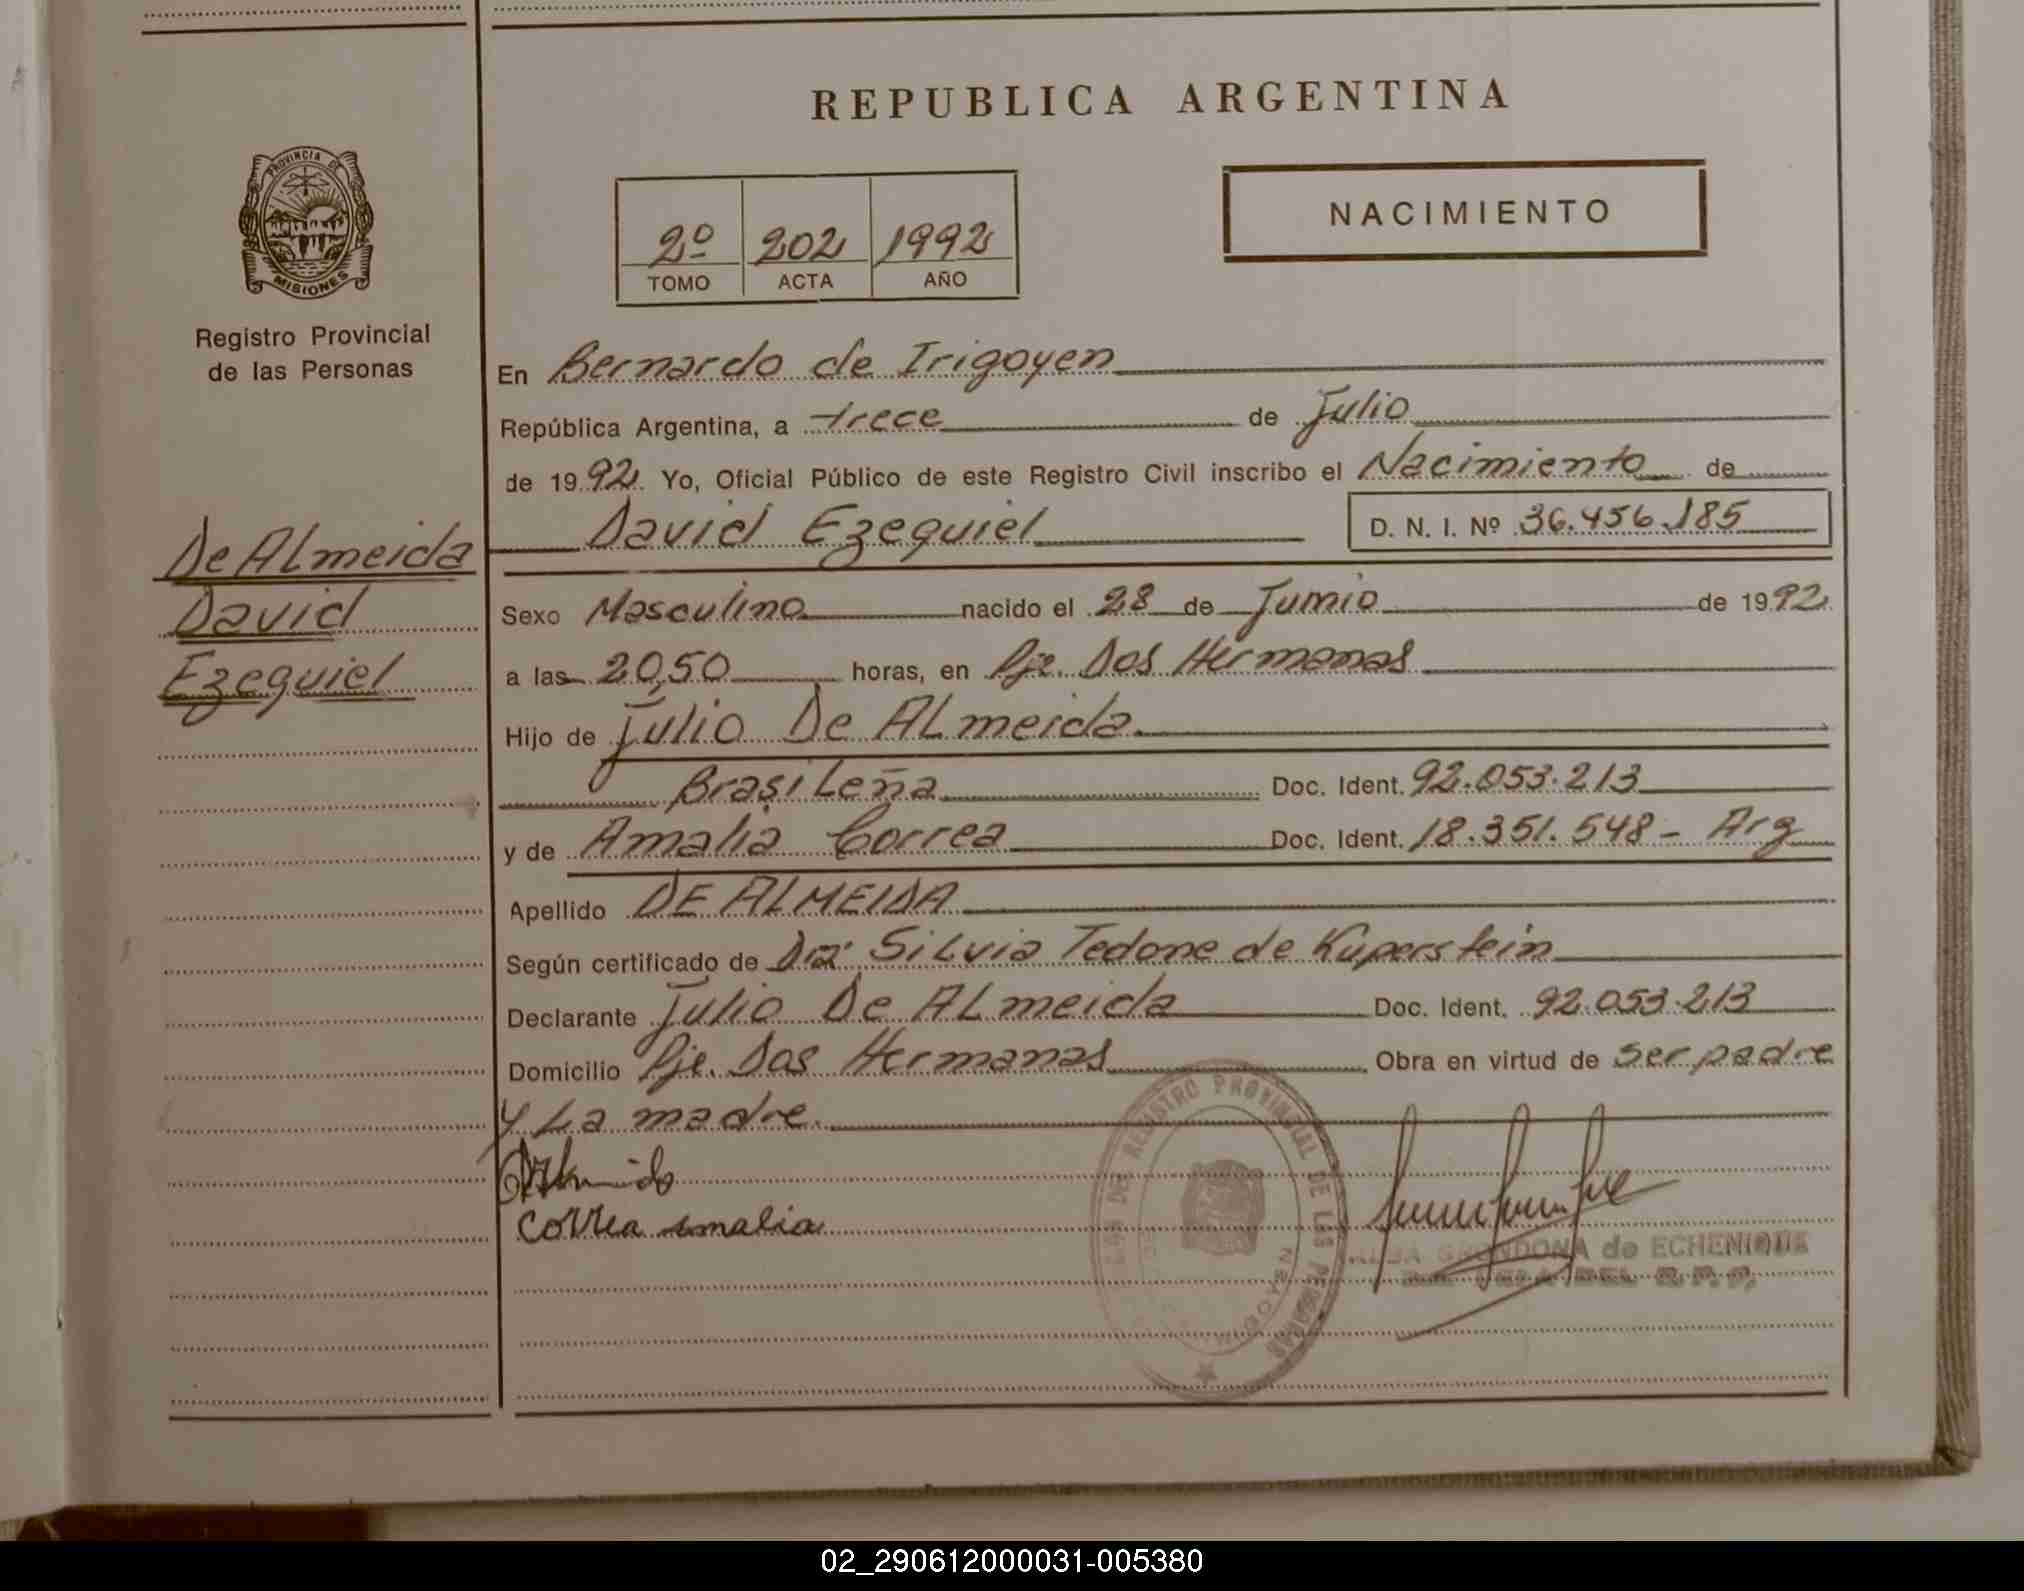 REPUBLICA ARGENTINA
PROVINCIA DE MISIONES
Registro Provincial
de las Personas
2º 202 1992
TOMO ACTA AÑO
NACIMIENTO
De ALmeida
David
Ezequiel
En Bernardo de Irigoyen
República Argentina, a trece de Julio
de 1992. Yo, Oficial Público de este Registro Civil inscribo el Nacimiento de
David Ezequiel D. N. I. Nº 36.456.185
Sexo Masculino nacido el 28 de Junio de 1992
a las 20,50 horas, en Pje. Dos Hermanas
Hijo de Julio De ALmeida
BrasiLeña Doc. Ident. 92.053.213
y de Amalia Correa Doc. Ident. 18.351.548 - Arg
Apellido DE ALMEIDA
Según certificado de Dra. SiLvia Tedone de Kuperstein
Declarante Julio De ALmeida Doc. Ident. 92.053.213
Domicilio Pje. Dos Hermanas Obra en virtud de ser padre
y La madre.
Correa amalia
REGISTRO PROVINCIAL DE LAS PERSONAS
GRONDONA de ECHENIQUE
DEL R.P.P.
02_290612000031-005380